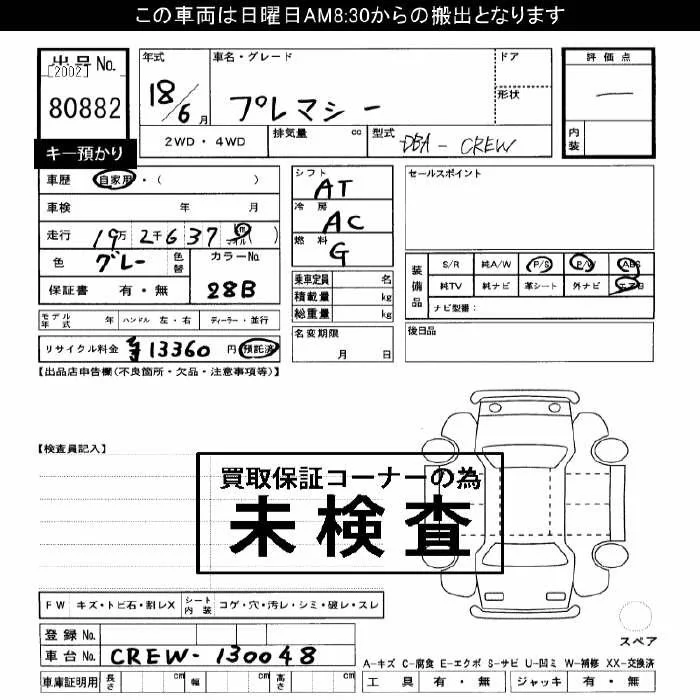 この車両は日曜日AM8:30からの搬出となります
出品No.
[2002]
80882
キー預かり
年式
18/6月
車名・グレード
プレマシー
ドア
形状
評価点
—
内装
2WD・4WD
排気量 cc
型式 DBA-CREW
車歴 自家用・( )
車検 年 月
走行 19万2千637 km マイル )
色 グレー
色替
カラーNo. 28B
保証書 有・無
シフト AT
冷房 AC
燃料 G
乗車定員 名
積載量 kg
総重量 kg
名変期限
月 日
セールスポイント
装備品
S/R 純A/W P/S P/W ABS
純TV 純ナビ 革シート 外ナビ エアB
ナビ型番:
後日品
モデル年式 年 ハンドル 左・右 ディーラー・並行
リサイクル料金 13360 円 預託済
【出品店申告欄(不良箇所・欠品・注意事項等)】
【検査員記入】
買取保証コーナーの為
未検査
FW キズ・トビ石・割レX シート内装 コゲ・穴・汚レ・シミ・破レ・スレ
登録No.
車台No. CREW-130048
車庫証明用 長さ cm 幅 cm 高さ cm
スペア
A-キズ C-腐食 E-エクボ S-サビ U-凹ミ W-補修 XX-交換済
工具 有・無 ジャッキ 有・無